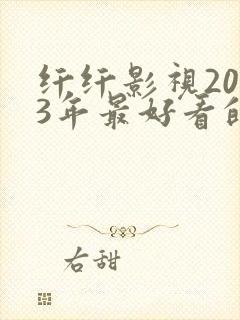 纤纤影視20
3年最好看的
右甜